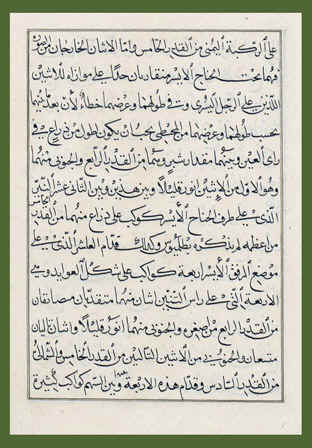 على الركبة اليمنى من القدر الخامس واما الاثنان الخارجان من الصورة
فهما تحت الجناح الايسر متقاربان جدا على موازاة للاثنين
اللذين على الرجل اليسرى وفي طولهما وعرضهما خطأ لان بعد بينهما
بحسب طولهما وعرضهما من المجسطي يجب ان يكون اطول من ذراع وفي
رأى العين وجدتهما مقدار شبر وهما من القدر الرابع والجنوبي منهما
وهو الاول من الاثنين انور قليلا وبين هذين وبين الثاني عشر
الذي على طرف الجناح الايسر كوكب على ذراع منهما من القدر
من اعظمه لم يذكره بطليموس وكذلك قدام العاشر الذي على
موضع المرفق الايسر اربعة كواكب على شكل
الاربعة التي على راس التنين اثنان منها متقدمان متضايقان
من القدر الرابع من اصغره والجنوبي منهما انور قليلا واثنان تاليان
متتبعان والجنوبي من الاثنين التاليين من القدر الخامس والشمالي
من القدر السادس وقدام هذه الاربعة وبين السهم كواكب كثيرة